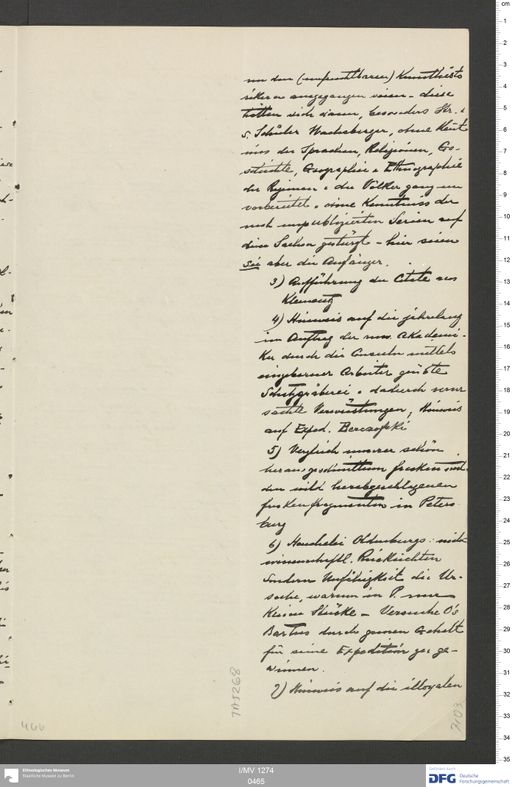 von den (unfruchtbaren) Kunsthisto
rikern ausgegangen seien - diese
hätten sich dann, besonders Hr.
s. Schüler Wachsberger, ohne Kennt
nis der Sprachen, Religionen, Ge-
schichte, Geographie u Ethnographie
der Regionen u der Völker ganz un
vorbereitet u ohne Kenntniss der
noch unpublizierten Serien auf
diese Sachen gestürzt - hier seien
sie aber die Anfänger.
3) Aufführung der Citate aus
Klementz
4) Hinweis auf die jahrelang
im Auftrag der russ. Akademi-
ker durch die Consuln mittels
eingeborner Arbeiter geübte
Schatzgräberei u dadurch verur
sachte Verwüstungen, Hinweis
auf Exped. Beresofski
5) Vergleich unserer schön
herausgeschnittenen Fresken mit
den wild herabgeschlagenen
Freskenfragmenten in Peters
burg
6) Heuchelei Oldenburgs: nicht
wissenschaftl. Rücksichten
sondern Unfähigkeit die Ur-
sache, warum in P. nur
kleine Stücke - Versuche O's
Bartus durch grossen Gehalt
für seine Expedition zu ge-
winnen.
7) Hinweis auf die illoyalen
TA 5268
466
7103
Ethnologisches Museum
Staatliche Museen zu Berlin
I/MV 1274
0465
Gefördert durch
DFG Deutsche
Forschungsgemeinschaft